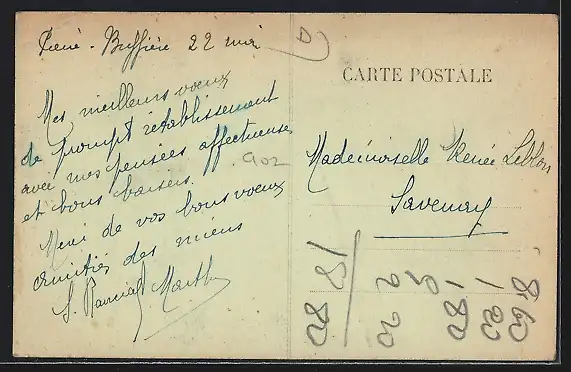 Pierre-Buffière 22 mai
Mes meilleurs voeux
de prompt rétablissement
avec mes pensées affectueuses
et bons baisers.
Merci de vos bons voeux
amitiés des miens
Marthe
902
CARTE POSTALE
Mademoiselle Renée Leblois
Savenay